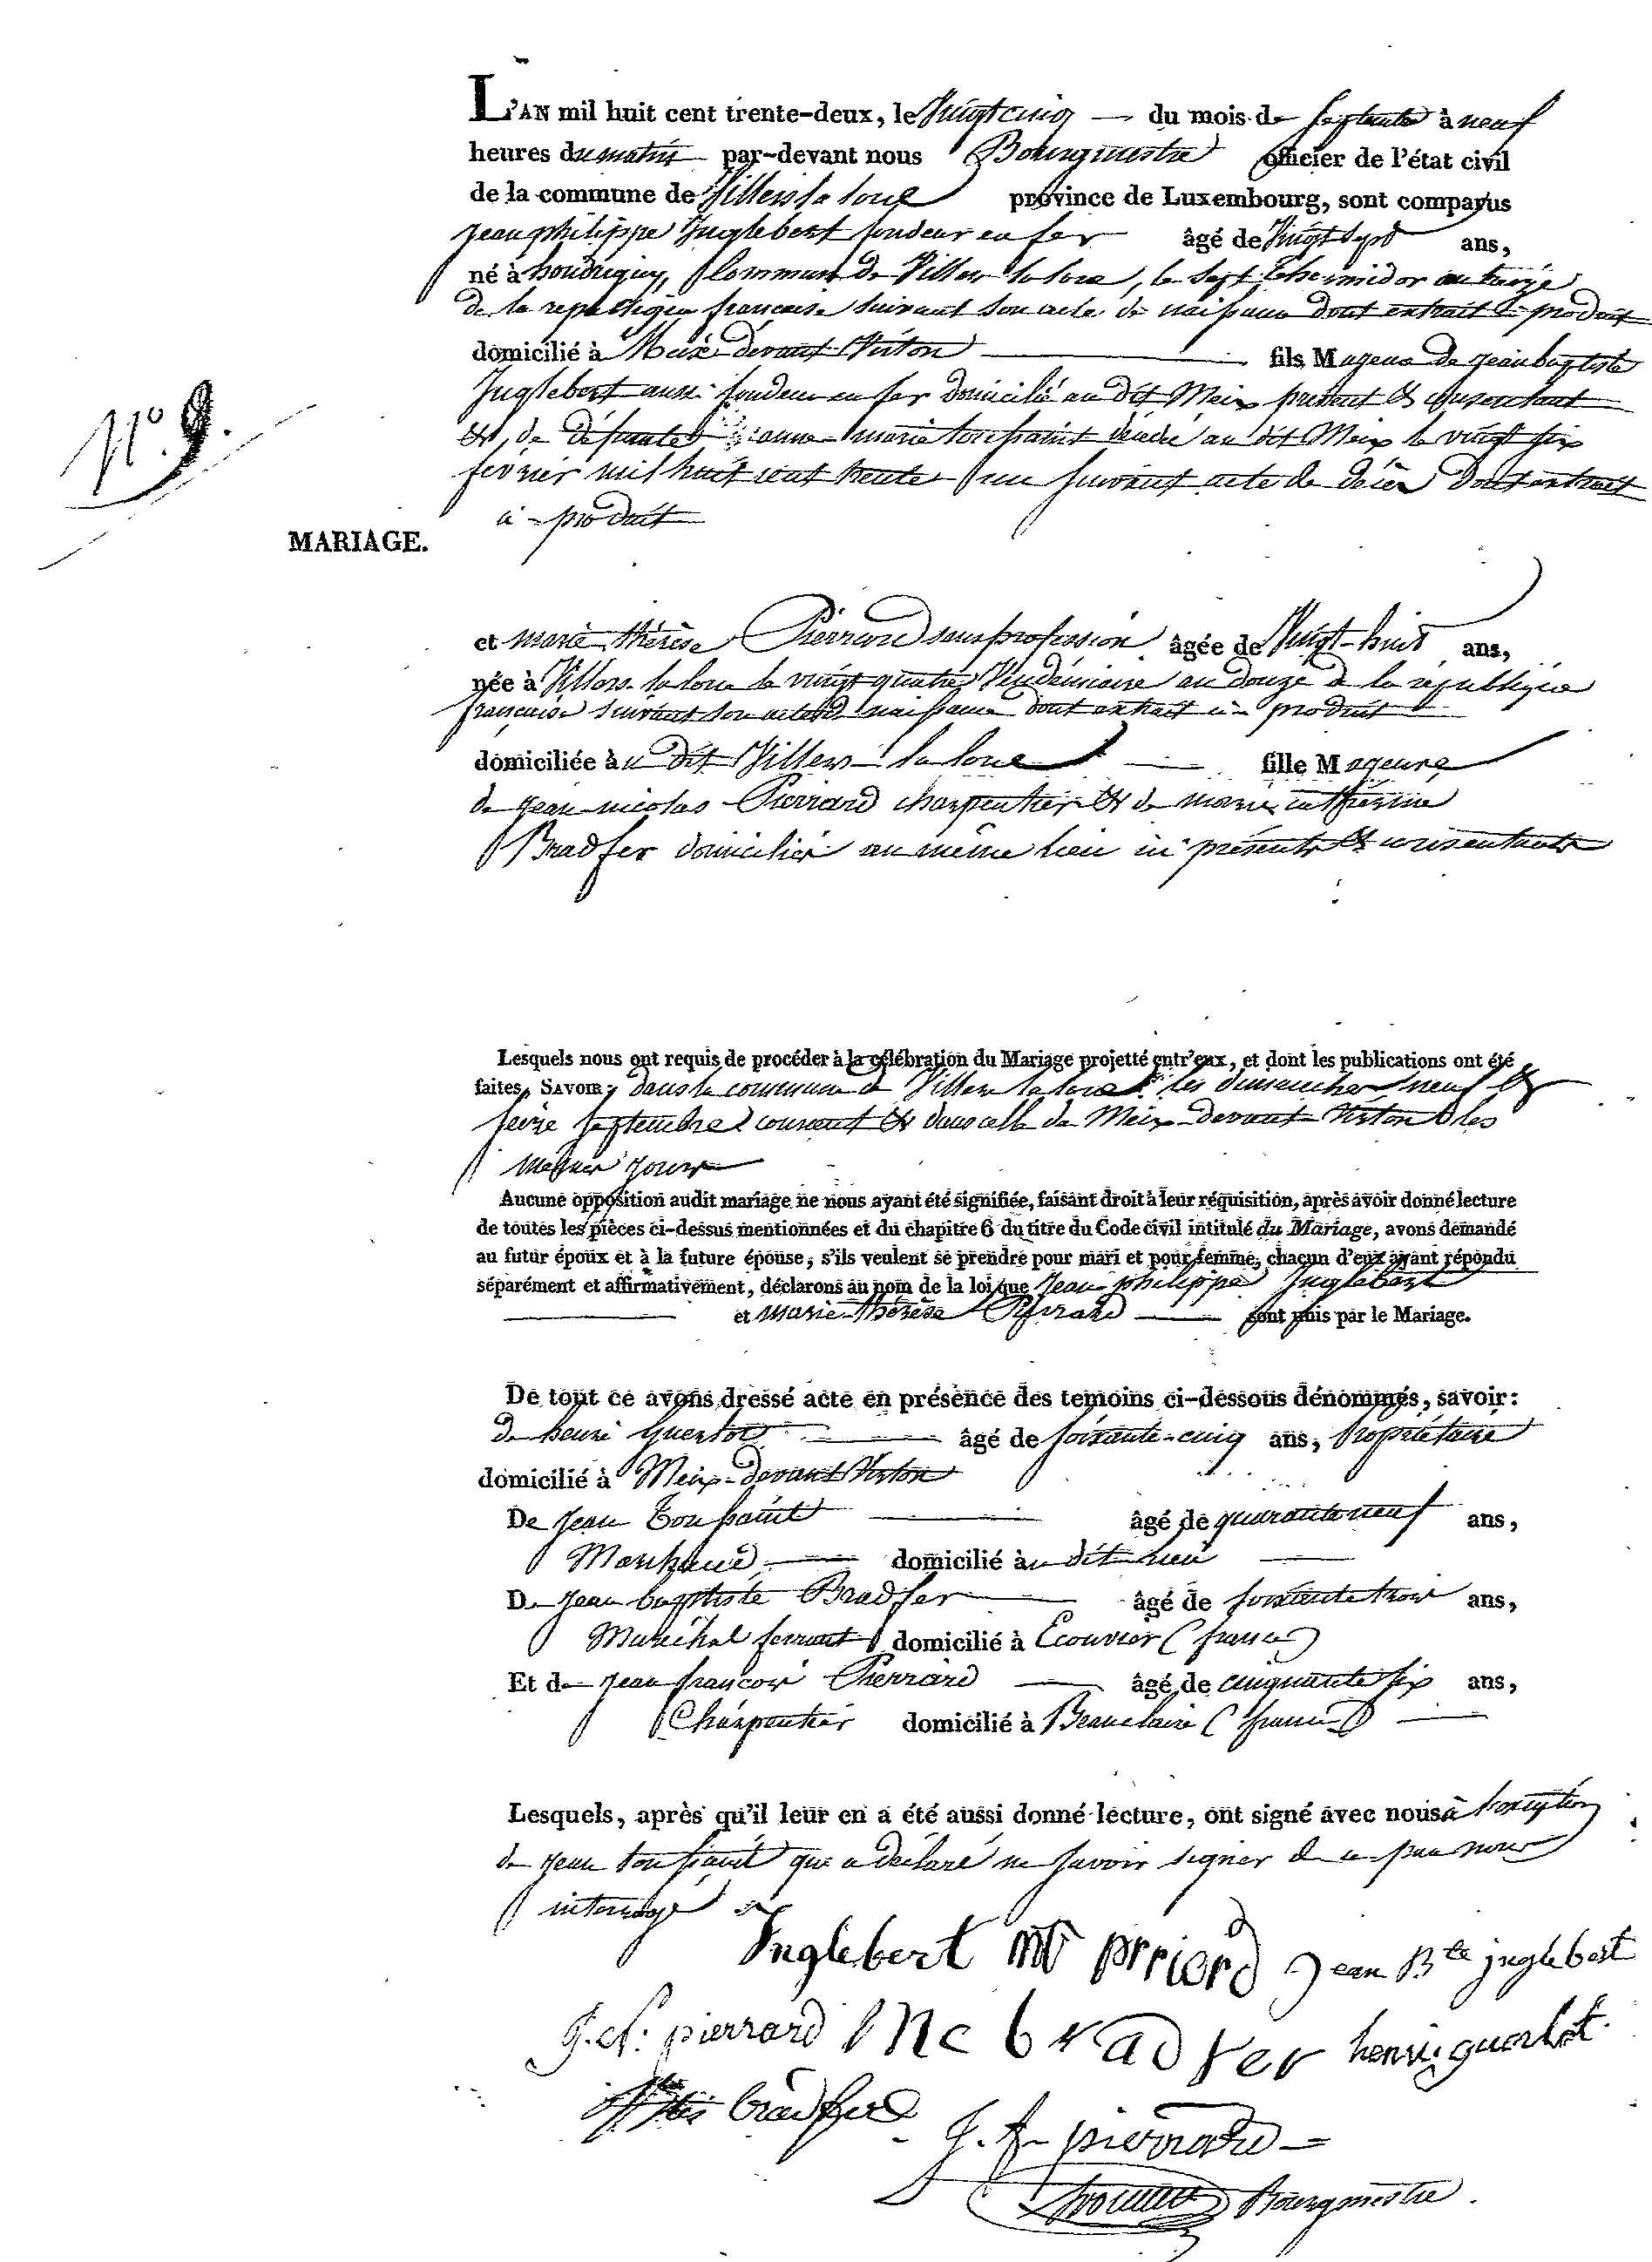 L'AN mil huit cent trente-deux, le Vingt cinq du mois de septembre à neuf
heures du matin par-devant nous Bourgmestre officier de l'état civil
de la commune de Villers la loue province de Luxembourg, sont comparus
jean philippe Inglebert fondeur en fer âgé de Vingt sept ans,
né à houdrigny, Commune de Villers la loue, le sept thermidor an treize
de la republique francaise suivant son acte de naissance dont extrait ci-produit
domicilié à Meix devant Virton fils Majeur de jean baptiste
Inglebert aussi fondeur en fer domicilié au dit Meix présent et consentant
et de défunte jeanne marie toussaint décédé au dit Meix le vingt six
fevrier mil huit cent trente un suivant acte de décès dont extrait
ci-produit
N° 9.
MARIAGE.
et marie thérèse Pierrard sans profession âgée de Vingt-huit ans,
née à Villers la loue le vingt quatre Vendémiaire an douze de la république
française suivant son acte de naissance dont extrait ci-produit
domiciliée à u dit Villers la loue fille Majeure
de jean nicolas Pierrard charpentier et de marie catherine
Bradfer domicilié au même lieu ici présents et consentants
Lesquels nous ont requis de procéder à la célébration du Mariage projetté entr'eux, et dont les publications ont été
faites, SAVOIR; dans la commune de Villers la loue les dimanches neuf et
seize septembre courant et dans celle de Meix-devant-Virton les
mêmes jours
Aucune opposition audit mariage ne nous ayant été signifiée, faisant droit à leur réquisition, après avoir donné lecture
de toutes les pièces ci-dessus mentionnées et du chapitre 6 du titre du Code civil intitulé du Mariage, avons demandé
au futur époux et à la future épouse, s'ils veulent se prendre pour mari et pour femme, chacun d'eux ayant répondu
séparément et affirmativement, déclarons au nom de la loi que Jean philippe Inglebert
et marie thérèse Pierrard sont unis par le Mariage.
De tout ce avons dressé acte en présence des temoins ci-dessous dénommés, savoir:
de henri Guerlot âgé de soixante-cinq ans, Propriétaire
domicilié à Meix-devant Virton
De jean Toussaint âgé de quarante neuf ans,
Marchand domicilié à u dit lieu
De jean baptiste Bradfer âgé de soixante trois ans,
Maréchal ferrant domicilié à Ecouvier (france)
Et de jean francois Pierrard âgé de cinquante six ans,
Charpentier domicilié à Beauclaire (france)
Lesquels, après qu'il leur en a été aussi donné lecture, ont signé avec nous à l'exception
de jean toussaint qui a déclaré ne savoir signer de ce par nous
interrogé
Inglebert mt prierd jean Bte jnglebert
J.N. pierrard M c bradfer henri guerlot
bradfer
J. f. pierrard
Bourgmestre.